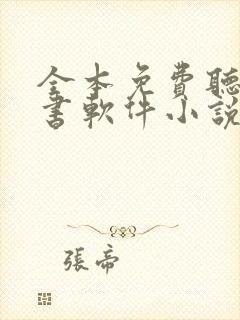 全本免費聽
書軟件小說
張帝